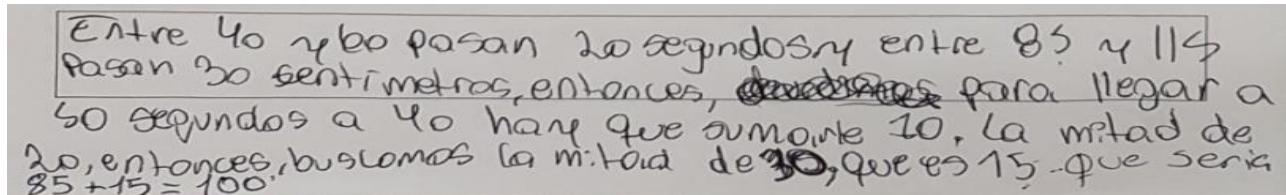 Entre 40 y 60 pasan 20 segundos y entre 85 y 115
Pasan 30 sentimetros, entonces, para llegar a
50 segundos a 40 hay que sumarle 10, la mitad de
20, entonces, buscamos la mitad de 30, que es 15 que seria
85 + 15 = 100.